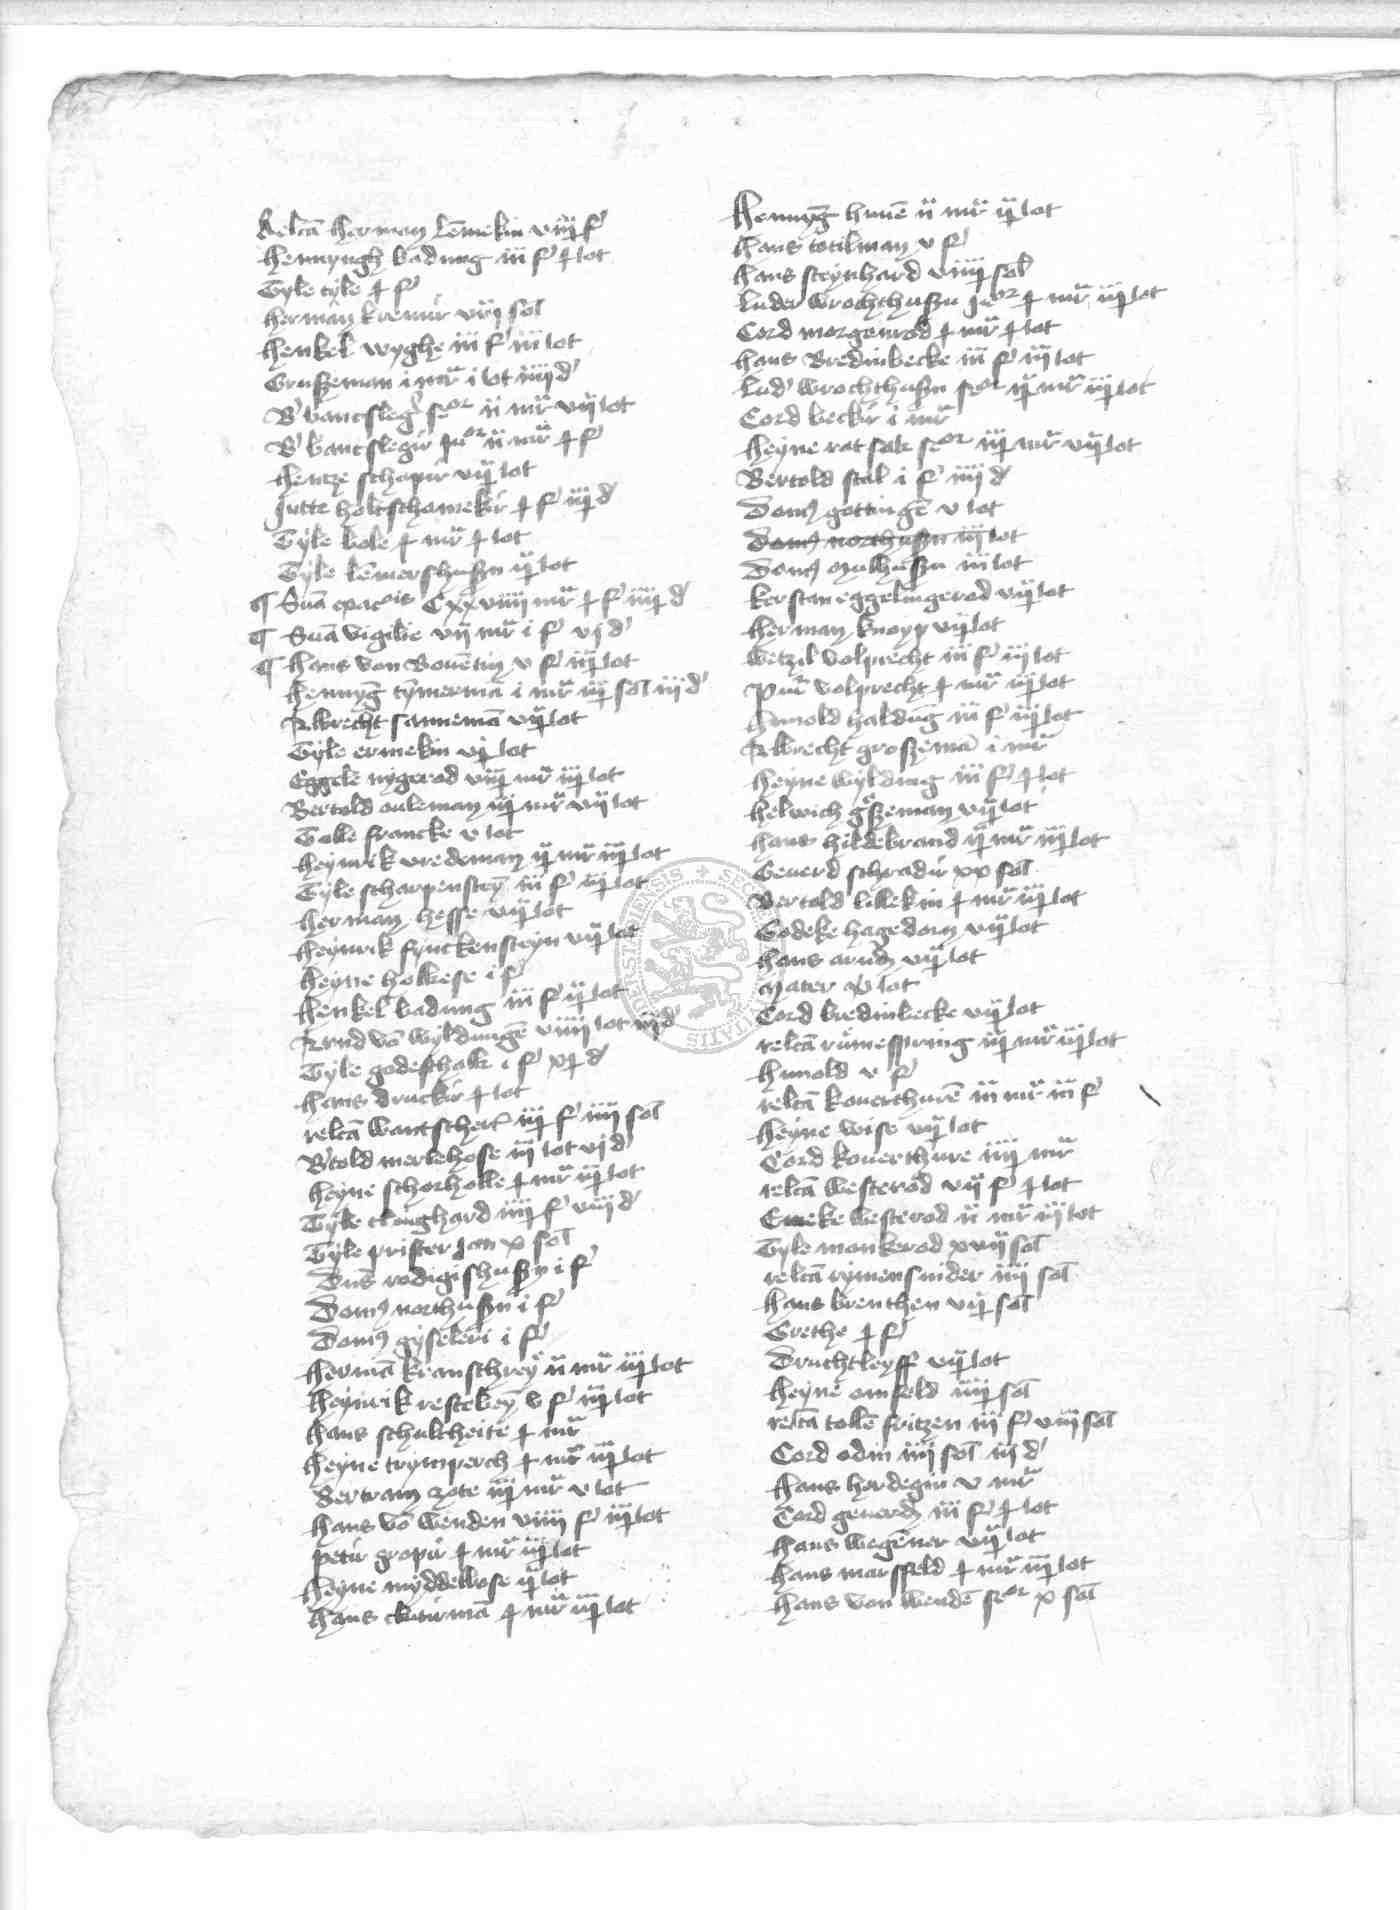 Relcā herman lēmekin viiij f
hennyngh badung iii f j lot
Tyle tyle j f
herman kremer viij sol
henkel wyghe iii f iii lot
Gruszeman i mr i lot iiij d
B bantsleg seor ii mr vij lot
B bantsleger juor ii mr j f
hentze schaper vij lot
Jutte holtschomeker j f iij d
Tyle bole j mr j lot
Tyle lēmershuszen ij lot
¶ Sūa Cxxviiii mr j f iiij d
¶ Sūa vigilie vij mr i f vj d
¶ hans von Bouentin v f iij lot
hennyg tymermā i mr iij sol iij d
Albrecht sannemā vij lot
Tyle ermekin vj lot
Eggele nygerod viij mr iij lot
Bertold ouleman iij mr vij lot
Tolle francke v lot
heynrik vredeman ij mr iij lot
Tyle scharpensteȳ iii f iij lot
herman hesse vij lot
heynrik fynckensteyn vij lot
heyne holkese i f
henkel badung iii f ij lot
Arnd vō wyldungē viiii lot iij d
Tyle godeschalk i f xj d
hans drucker j lot
relcā wantscher iij f iiii sol
Btold merlehose iij lot vj d
heyne schorholle j mr iij lot
Tyle clinghard iiij f viii d
Tyle prister Jan x sol
Dns rodigishuszen i f
Dom9 northuszen i f
Dom9 gyseleri i f
hermā kranschrey ii mr iij lot
heynrik restebeȳ v f iij lot
hans schulcheite j mr
heyne trymperch j mr iij lot
Bertram zote iij mr v lot
hans vō wenden viiii f iij lot
peter groper j mr iij lot
heyne myddelhose ij lot
hans j mr iij lot
hennyg hunē ii mr ij lot
hans totilman v f
hans steynhard viiij sol
luder wrochthuszen juor j mr iij lot
Cord morgenrod j mr j lot
hans Bredinbecke iii f iij lot
lud wrochthuszen seor ij mr iij lot
Cord becker i mr
heyne ratfale seor iij mr vij lot
Bertold stal i f iiij d
Dom9 gottingē v lot
Dom9 northuszen iij lot
Dom9 Mulhuszen iii lot
kerstan eggelingerod vij lot
herman knoyp vij lot
wetzil volprecht iii f iij lot
volprecht j mr iij lot
hunold haldung iii f iij lot
Albrecht groszemā i mr
heyne wyldung iii f j lot
helwich gszeman vij lot
hans hildebrand ij mr iij lot
Geuerd schrader xx sol
Bertold lillekin j mr iij lot
Godeke hagedorn vij lot
hans arnd vij lot
Mater xv lot
Cord bredinbecke vij lot
relcā rumespring ij mr iij lot
hunold v f
relcā kouerthurē iii mr iii f
heyne wise vij lot
Cord kouerthure iiij mr
relcā westerod vij f j lot
Emeke westerod ii mr iij lot
Tyle monkerod xvij sol
relcā rymensnider iiij sol
hans brenthen vij sol
Grethe j f
Druchtleyff vij lot
heyne omfeld iiij sol
relcā tollē fritzen iij f viij sol
Cord odin iiij sol iij d
hans herdegin v mr
Cord geuerd iii f j lot
hans wegener vij lot
hans marsfeld j mr iij lot
hans von wendē seor x sol